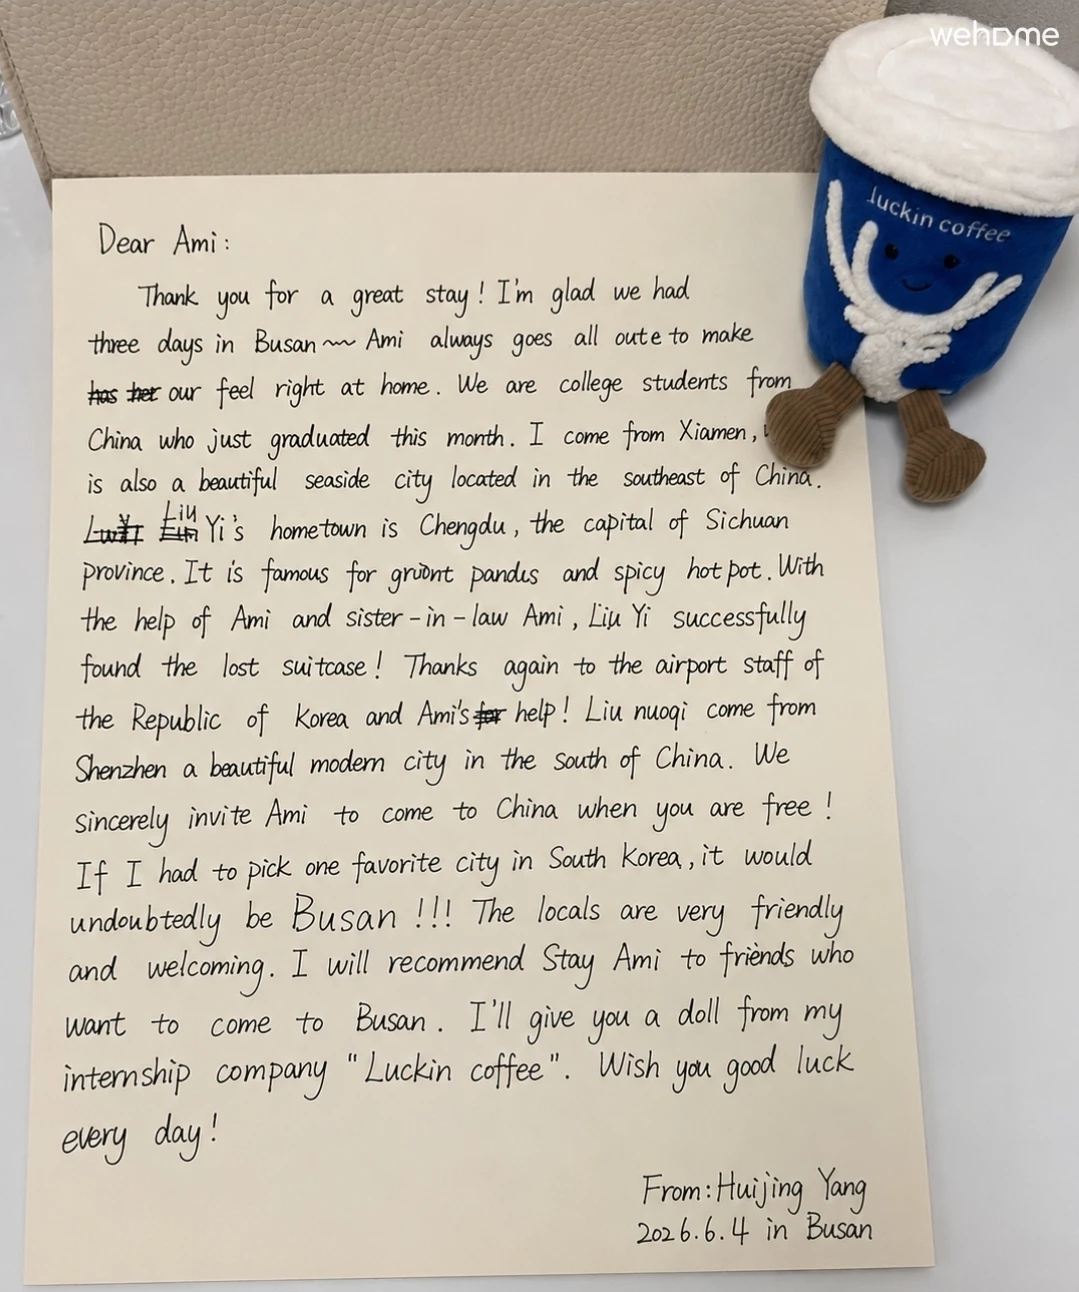 wehome
luckin coffee
Dear Ami:
Thank you for a great stay! I'm glad we had
three days in Busan~~ Ami always goes all oute to make
has her our feel right at home. We are college students from
China who just graduated this month. I come from Xiamen,
is also a beautiful seaside city located in the southeast of China.
Liu
Yi's hometown is Chengdu, the capital of Sichuan
province. It is famous for pandas and spicy hot pot. With
the help of Ami and sister-in-law Ami, Liu Yi successfully
found the lost suitcase! Thanks again to the airport staff of
the Republic of Korea and Ami's for help! Liu nuoqi come from
Shenzhen a beautiful modern city in the south of China. We
sincerely invite Ami to come to China when you are free!
If I had to pick one favorite city in South Korea, it would
undoubtedly be Busan!!! The locals are very friendly
and welcoming. I will recommend Stay Ami to friends who
want to come to Busan. I'll give you a doll from my
internship company "Luckin coffee". Wish you good luck
every day!
From: Huijing Yang
2026.6.4 in Busan